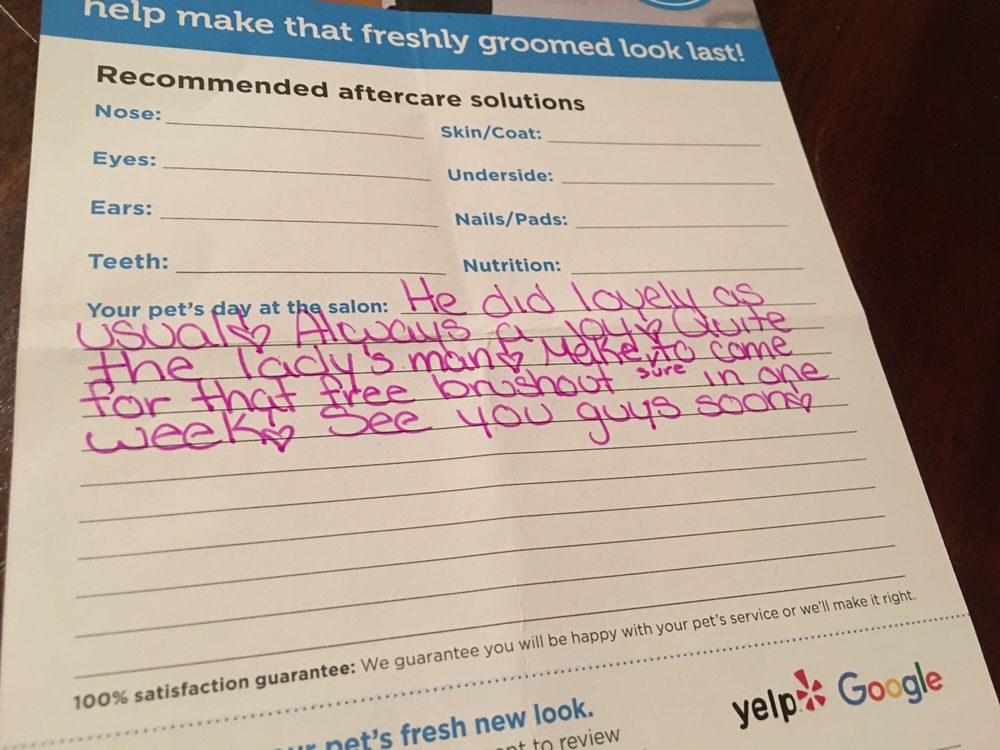 help make that freshly groomed look last!
Recommended aftercare solutions
Nose:
Skin/Coat:
Eyes:
Underside:
Ears:
Nails/Pads:
Teeth:
Nutrition:
Your pet's day at the salon: He did lovely as
usual♡ Always a joy♡ Quite
the lady's man♡ Make sure to come
for that free brushout in one
week♡ See you guys soon♡
100% satisfaction guarantee: We guarantee you will be happy with your pet's service or we'll make it right.
pet's fresh new look.
to review
yelp Google